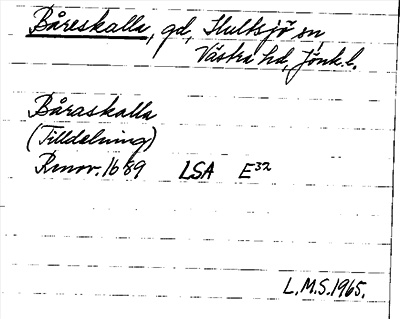 Båreskalla, gd, Hultsjö sn
Västra hd, Jönk.l.
Båraskalla
(Tilldelning)
Rmov. 1689 LSA E³²
L.M.S. 1965.